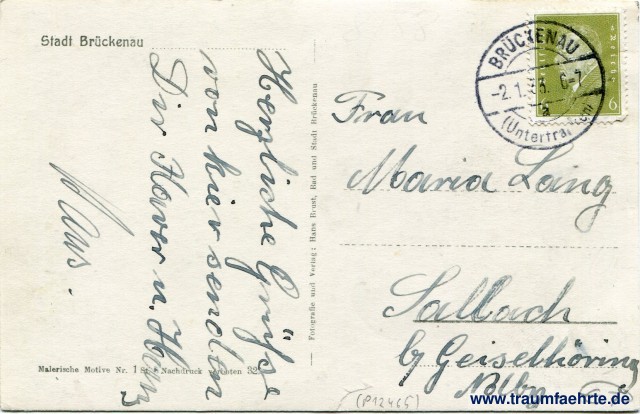 Stadt Brückenau
Herzliche Grüße
von hier senden
Dir Xaver u. Hans
Fotografie und Verlag: Hans Brust, Bad und Stadt Brückenau
BRÜCKENAU
-2.1.33. 6-7
a
(Unterfranken)
6
Frau
Maria Lang
Sallach
b/ Geiselhöring
Ndby.
Malerische Motive Nr. 1 St. Nachdruck verboten 32
(P12465)
www.traumfaehrte.de